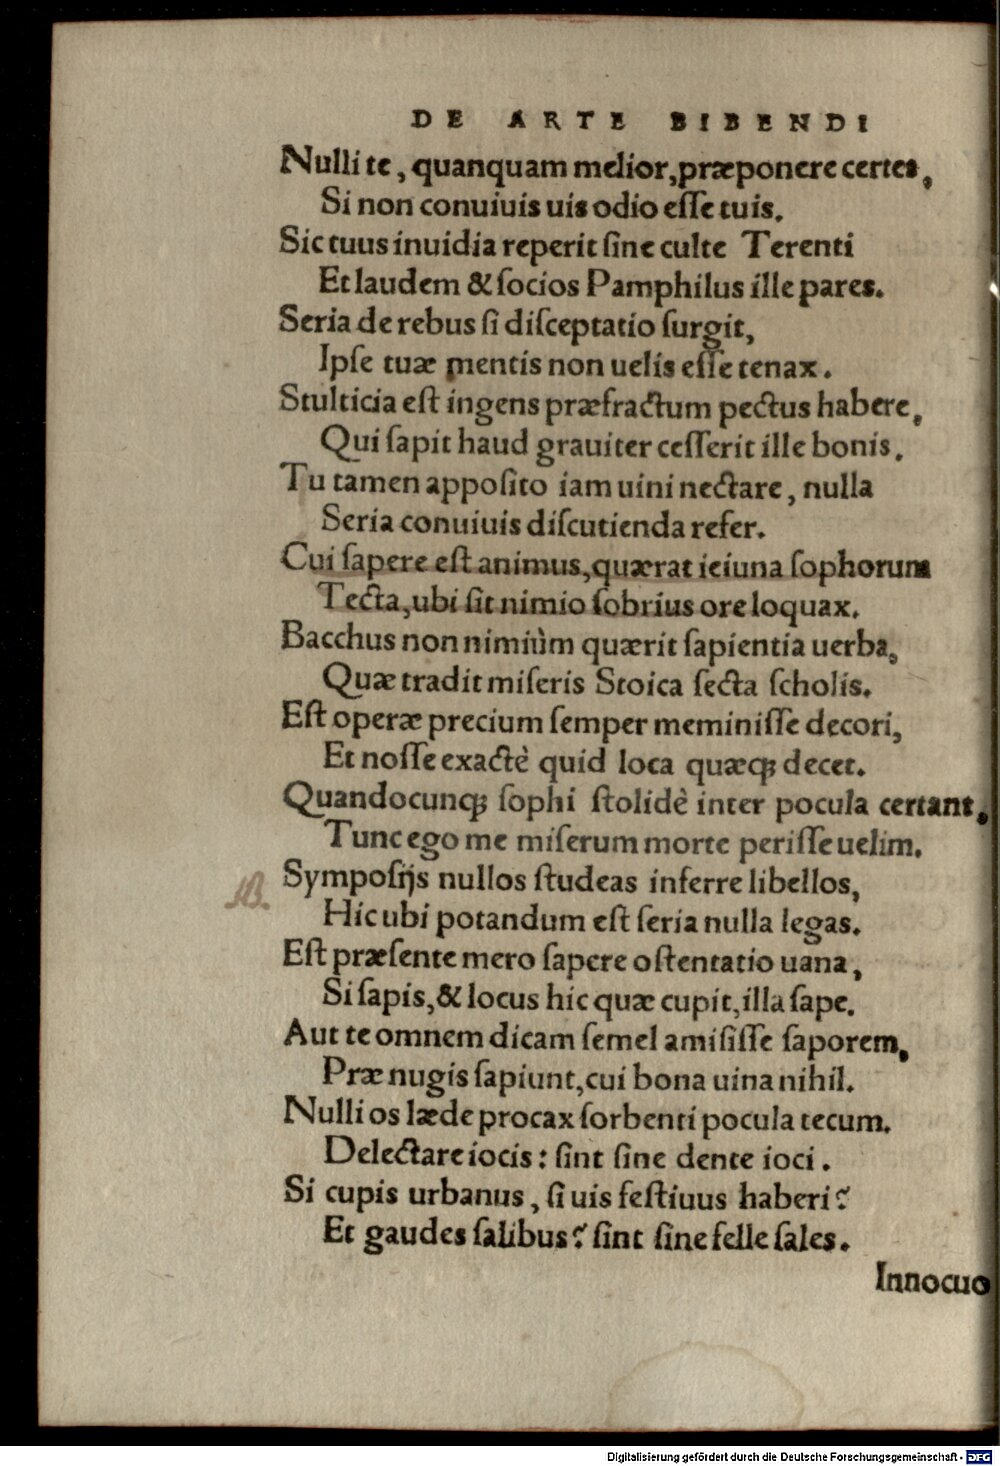 DE ARTE BIBENDI
Nulli te, quanquam melior, præponere certes,
Si non conuiuis uis odio eſſe tuis.
Sic tuus inuidia reperit ſine culte Terenti
Et laudem & ſocios Pamphilus ille pares.
Seria de rebus ſi diſceptatio ſurgit,
Ipſe tuæ mentis non uelis eſſe tenax.
Stulticia eſt ingens præfractum pectus habere,
Qui ſapit haud grauiter ceſſerit ille bonis.
Tu tamen appoſito iam uini nectare, nulla
Seria conuiuis diſcutienda refer.
Cui ſapere eſt animus, quærat ieiuna ſophorum
Tecta, ubi ſit nimio ſobrius ore loquax.
Bacchus non nimiùm quærit ſapientia uerba,
Quæ tradit miſeris Stoica ſecta ſcholis.
Eſt operæ precium ſemper meminiſſe decori,
Et noſſe exactè quid loca quæq; decet.
Quandocunq; ſophi ſtolidè inter pocula certant,
Tunc ego me miſerum morte periſſe uelim.
Sympoſijs nullos ſtudeas inferre libellos,
Hic ubi potandum eſt ſeria nulla legas.
Eſt præſente mero ſapere oſtentatio uana,
Si ſapis, & locus hic quæ cupit, illa ſape.
Aut te omnem dicam ſemel amiſiſſe ſaporem,
Præ nugis ſapiunt, cui bona uina nihil.
Nulli os læde procax ſorbenti pocula tecum.
Delectare iocis: ſint ſine dente ioci.
Si cupis urbanus, ſi uis feſtiuus haberi?
Et gaudes ſalibus? ſint ſine felle ſales.
Innocuo
Digitalisierung gefördert durch die Deutsche Forschungsgemeinschaft - DFG